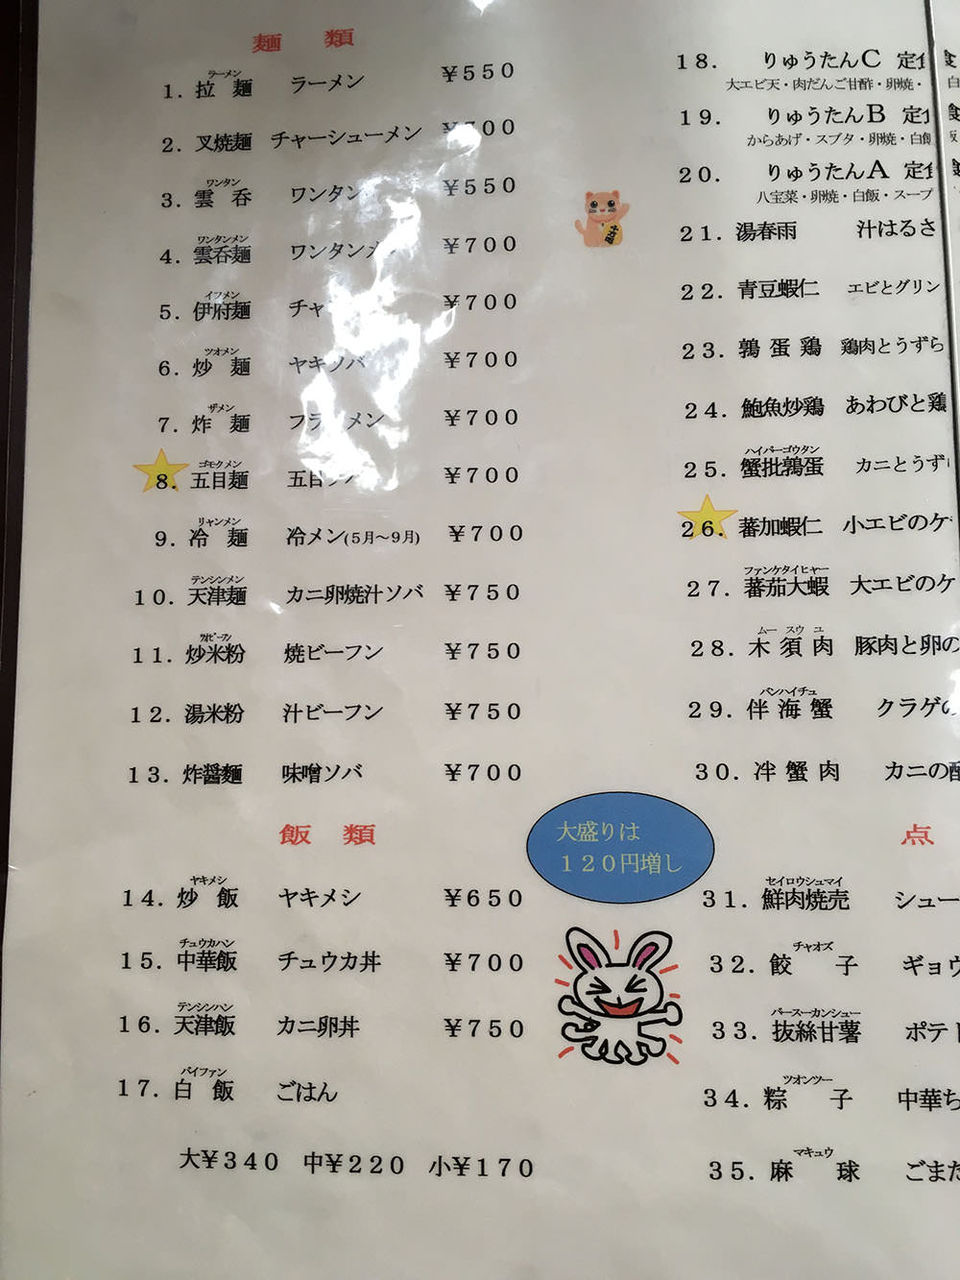 麺 類
ラーメン
1. 拉 麺 ラーメン ¥550
2. 叉焼麺 チャーシューメン ¥700
ワンタン
3. 雲 呑 ワンタン ¥550
ワンタンメン
4. 雲呑麺 ワンタンメン ¥700
イフメン
5. 伊府麺 チャ ¥700
ツオメン
6. 炒 麺 ヤキソバ ¥700
ザメン
7. 炸 麺 フラ メン ¥700
ゴモクメン
8. 五目麺 五目 ¥700
リャンメン
9. 冷 麺 冷メン(5月〜9月) ¥700
テンシンメン
10. 天津麺 カニ卵焼汁ソバ ¥750
11. 炒米粉 焼ビーフン ¥750
12. 湯米粉 汁ビーフン ¥750
13. 炸醤麺 味噌ソバ ¥700
飯 類
ヤキメシ
14. 炒 飯 ヤキメシ ¥650
チュウカハン
15. 中華飯 チュウカ丼 ¥700
テンシンハン
16. 天津飯 カニ卵丼 ¥750
パイファン
17. 白 飯 ごはん
大¥340 中¥220 小¥170
大盛りは
120円増し
18. りゅうたんC 定食
大エビ天・肉だんご甘酢・卵焼・白
19. りゅうたんB 定食
からあげ・スブタ・卵焼・白飯
20. りゅうたんA 定食
八宝菜・卵焼・白飯・スープ
21. 湯春雨 汁はるさ
22. 青豆蝦仁 エビとグリン
23. 鶉 蛋 鶏 鶏肉とうずら
24. 鮑魚炒鶏 あわびと鶏
ハイパーゴウタン
25. 蟹批鶉蛋 カニとうずら
26. 蕃加蝦仁 小エビのケ
ファンケタイヒャー
27. 蕃茄大蝦 大エビのケ
ムー スウ ユ
28. 木 須 肉 豚肉と卵の
バンハイチュ
29. 伴 海 蟹 クラゲの
30. 冸 蟹 肉 カニの酢
点
セイロウシュマイ
31. 鮮肉焼売 シュー
チャオズ
32. 餃 子 ギョウ
バースーカンシュー
33. 抜絲甘薯 ポテト
ツオンツー
34. 粽 子 中華ち
マキュウ
35. 麻 球 ごまだ